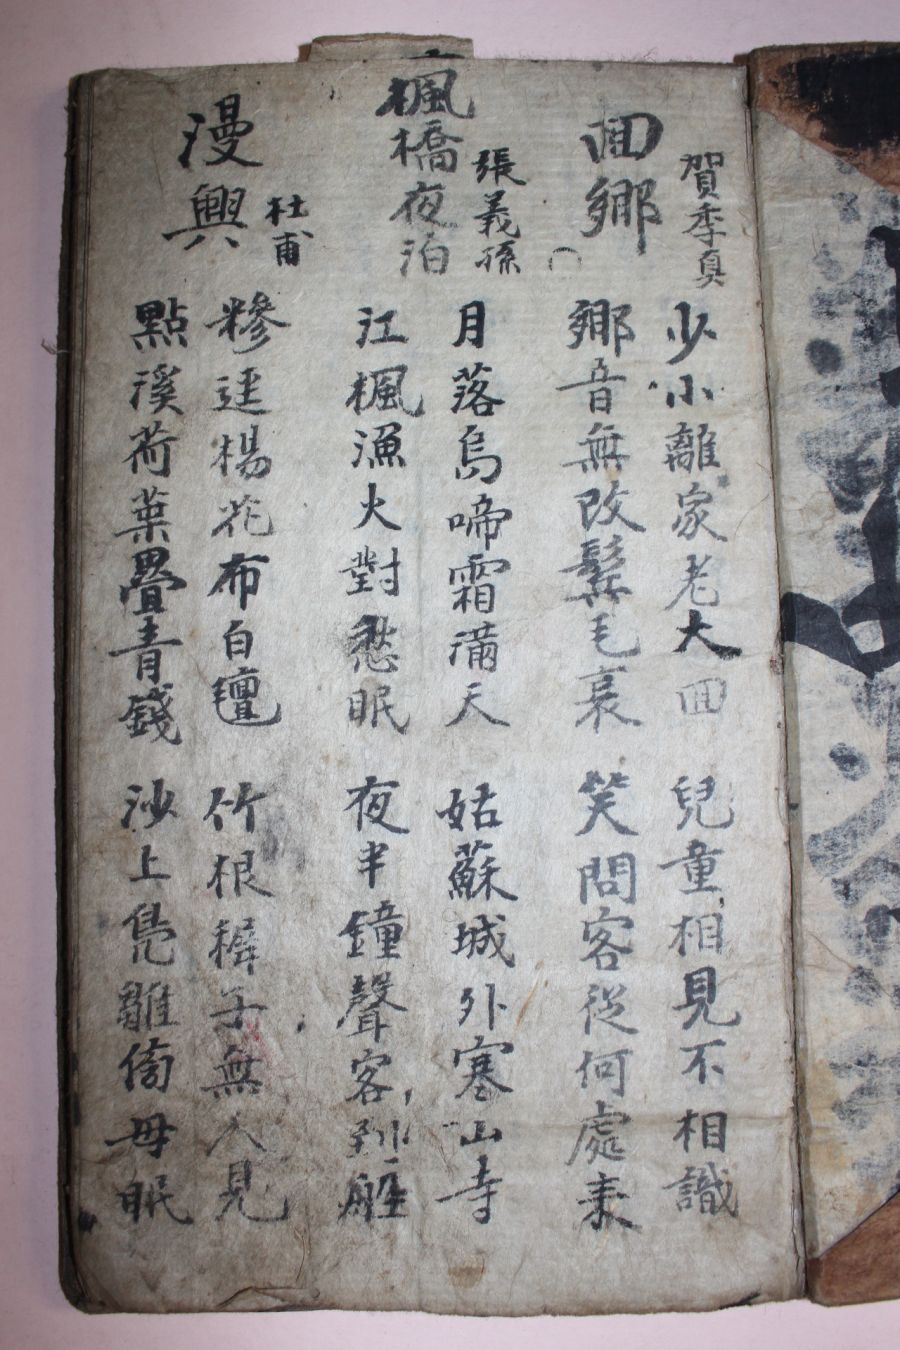 囬鄉
賀季真
少小離家老大囬 兒童相見不相識
鄉音無改鬢毛衰 笑問客從何處来
楓橋夜泊
張義孫
月落烏啼霜滿天 姑蘇城外寒山寺
江楓漁火對愁眠 夜半鐘聲客到船
漫興
杜甫
糝逕楊花布白氈 竹根穉子無人見
點溪荷葉疊青錢 沙上鳧雛傍母眠